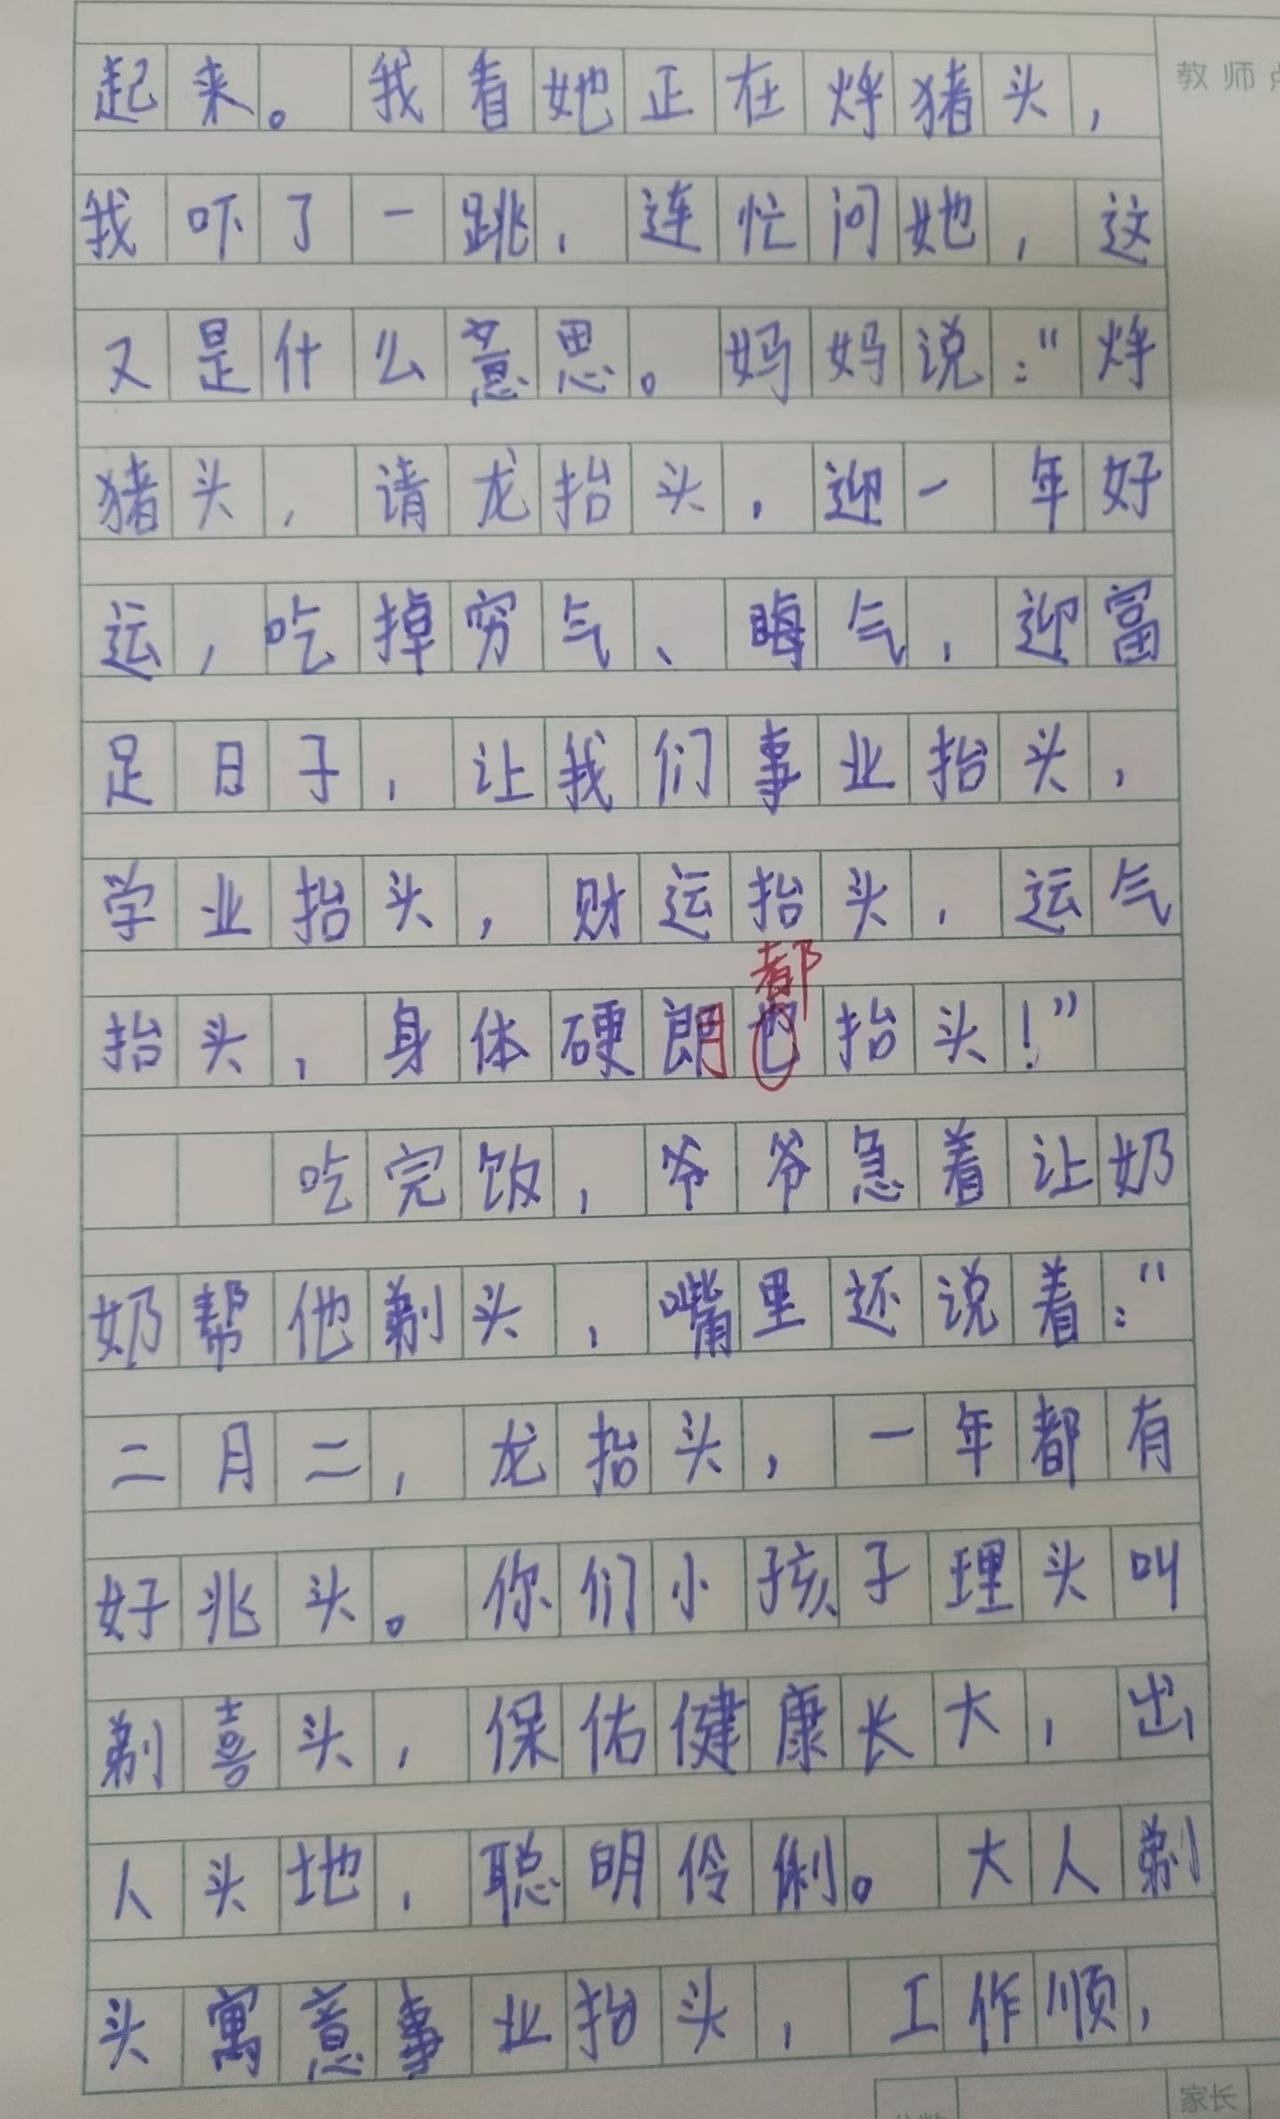 教师点
起来。我看她正在烀猪头，
我吓了一跳，连忙问她，这
又是什么意思。妈妈说："烀
猪头，请龙抬头，迎一年好
运，吃掉穷气、晦气，迎富
足日子，让我们事业抬头，
学业抬头，财运抬头，运气
都
抬头，身体硬朗也抬头！"
吃完饭，爷爷急着让奶
奶帮他剃头，嘴里还说着："
二月二，龙抬头，一年都有
好兆头。你们小孩子理头叫
剃喜头，保佑健康长大，出
人头地，聪明伶俐。大人剃
头寓意事业抬头，工作顺，
家长